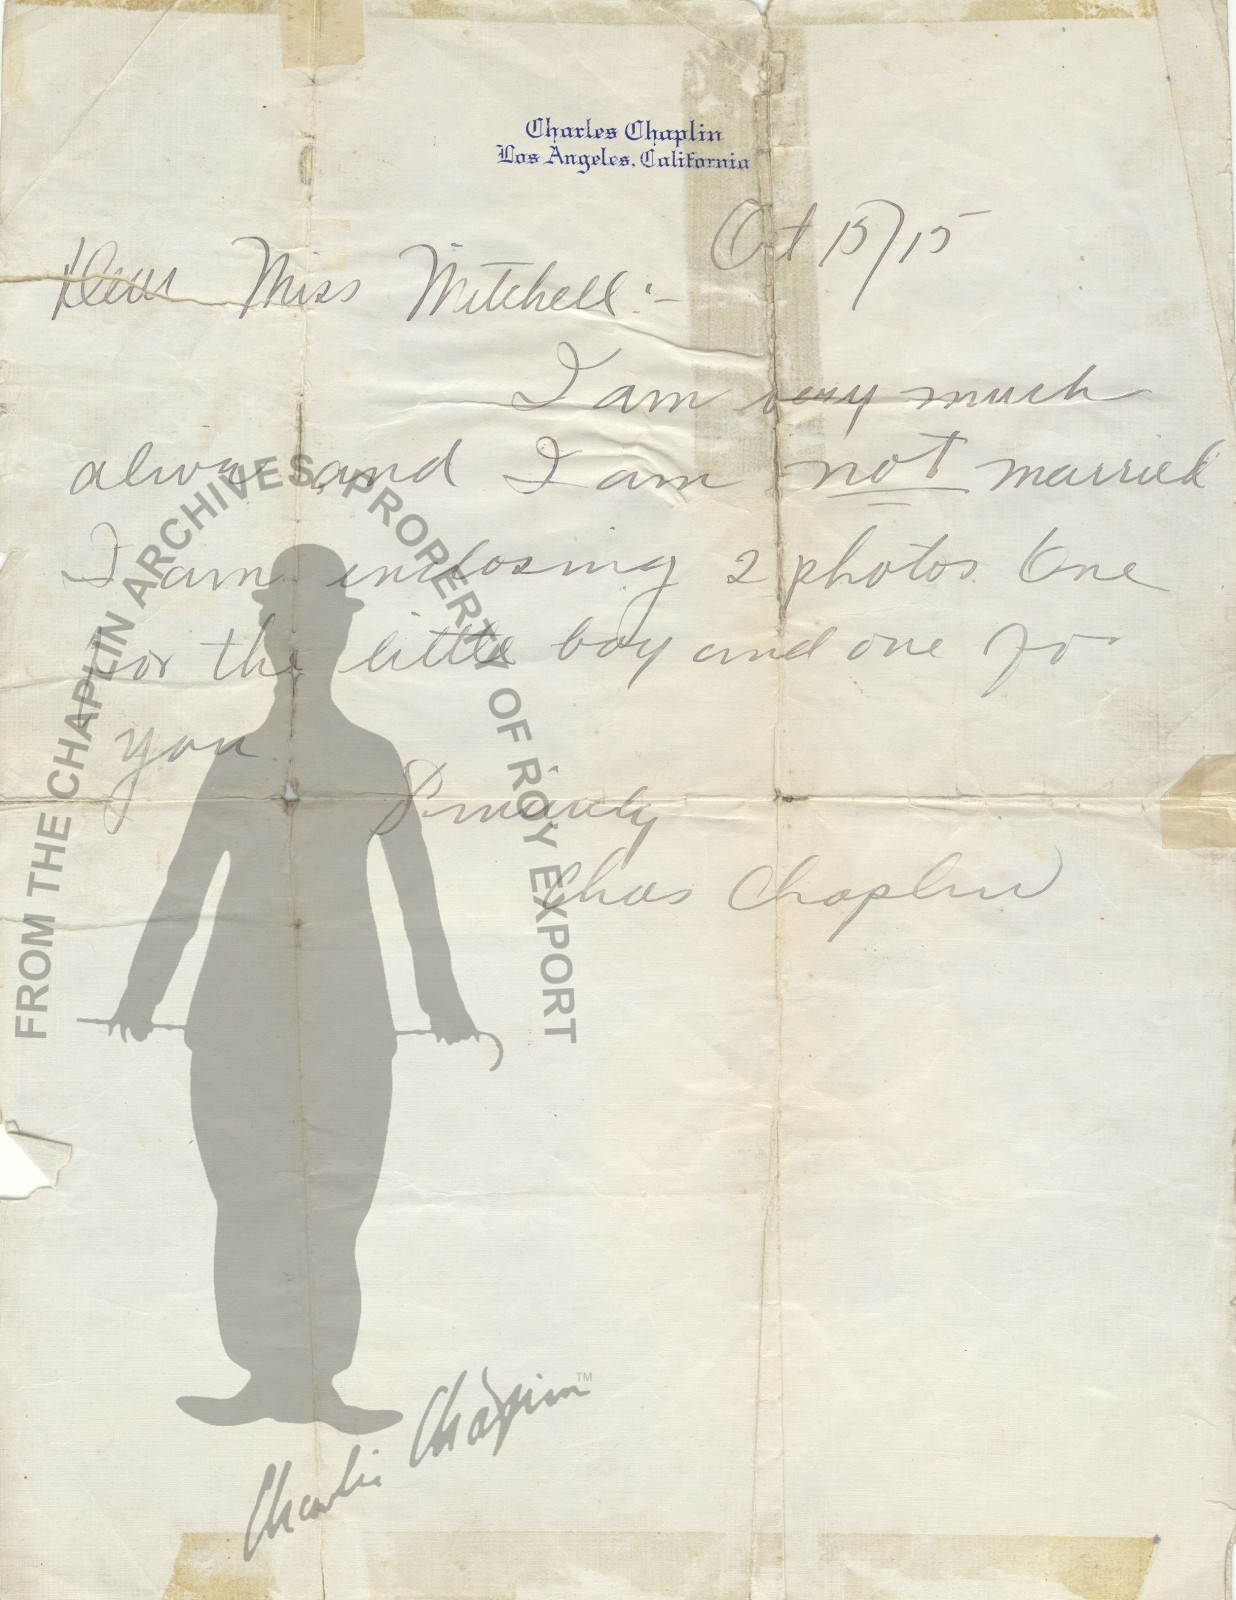 Charles Chaplin
Los Angeles, California
Oct 15/15
Dear Miss Mitchell:-
I am very much
alive and I am not married
I am enclosing 2 photos One
for the little boy and one for
you
Sincerely
Chas Chaplin
FROM THE CHAPLIN ARCHIVES, PROPERTY OF ROY EXPORT
Charlie Chaplin™